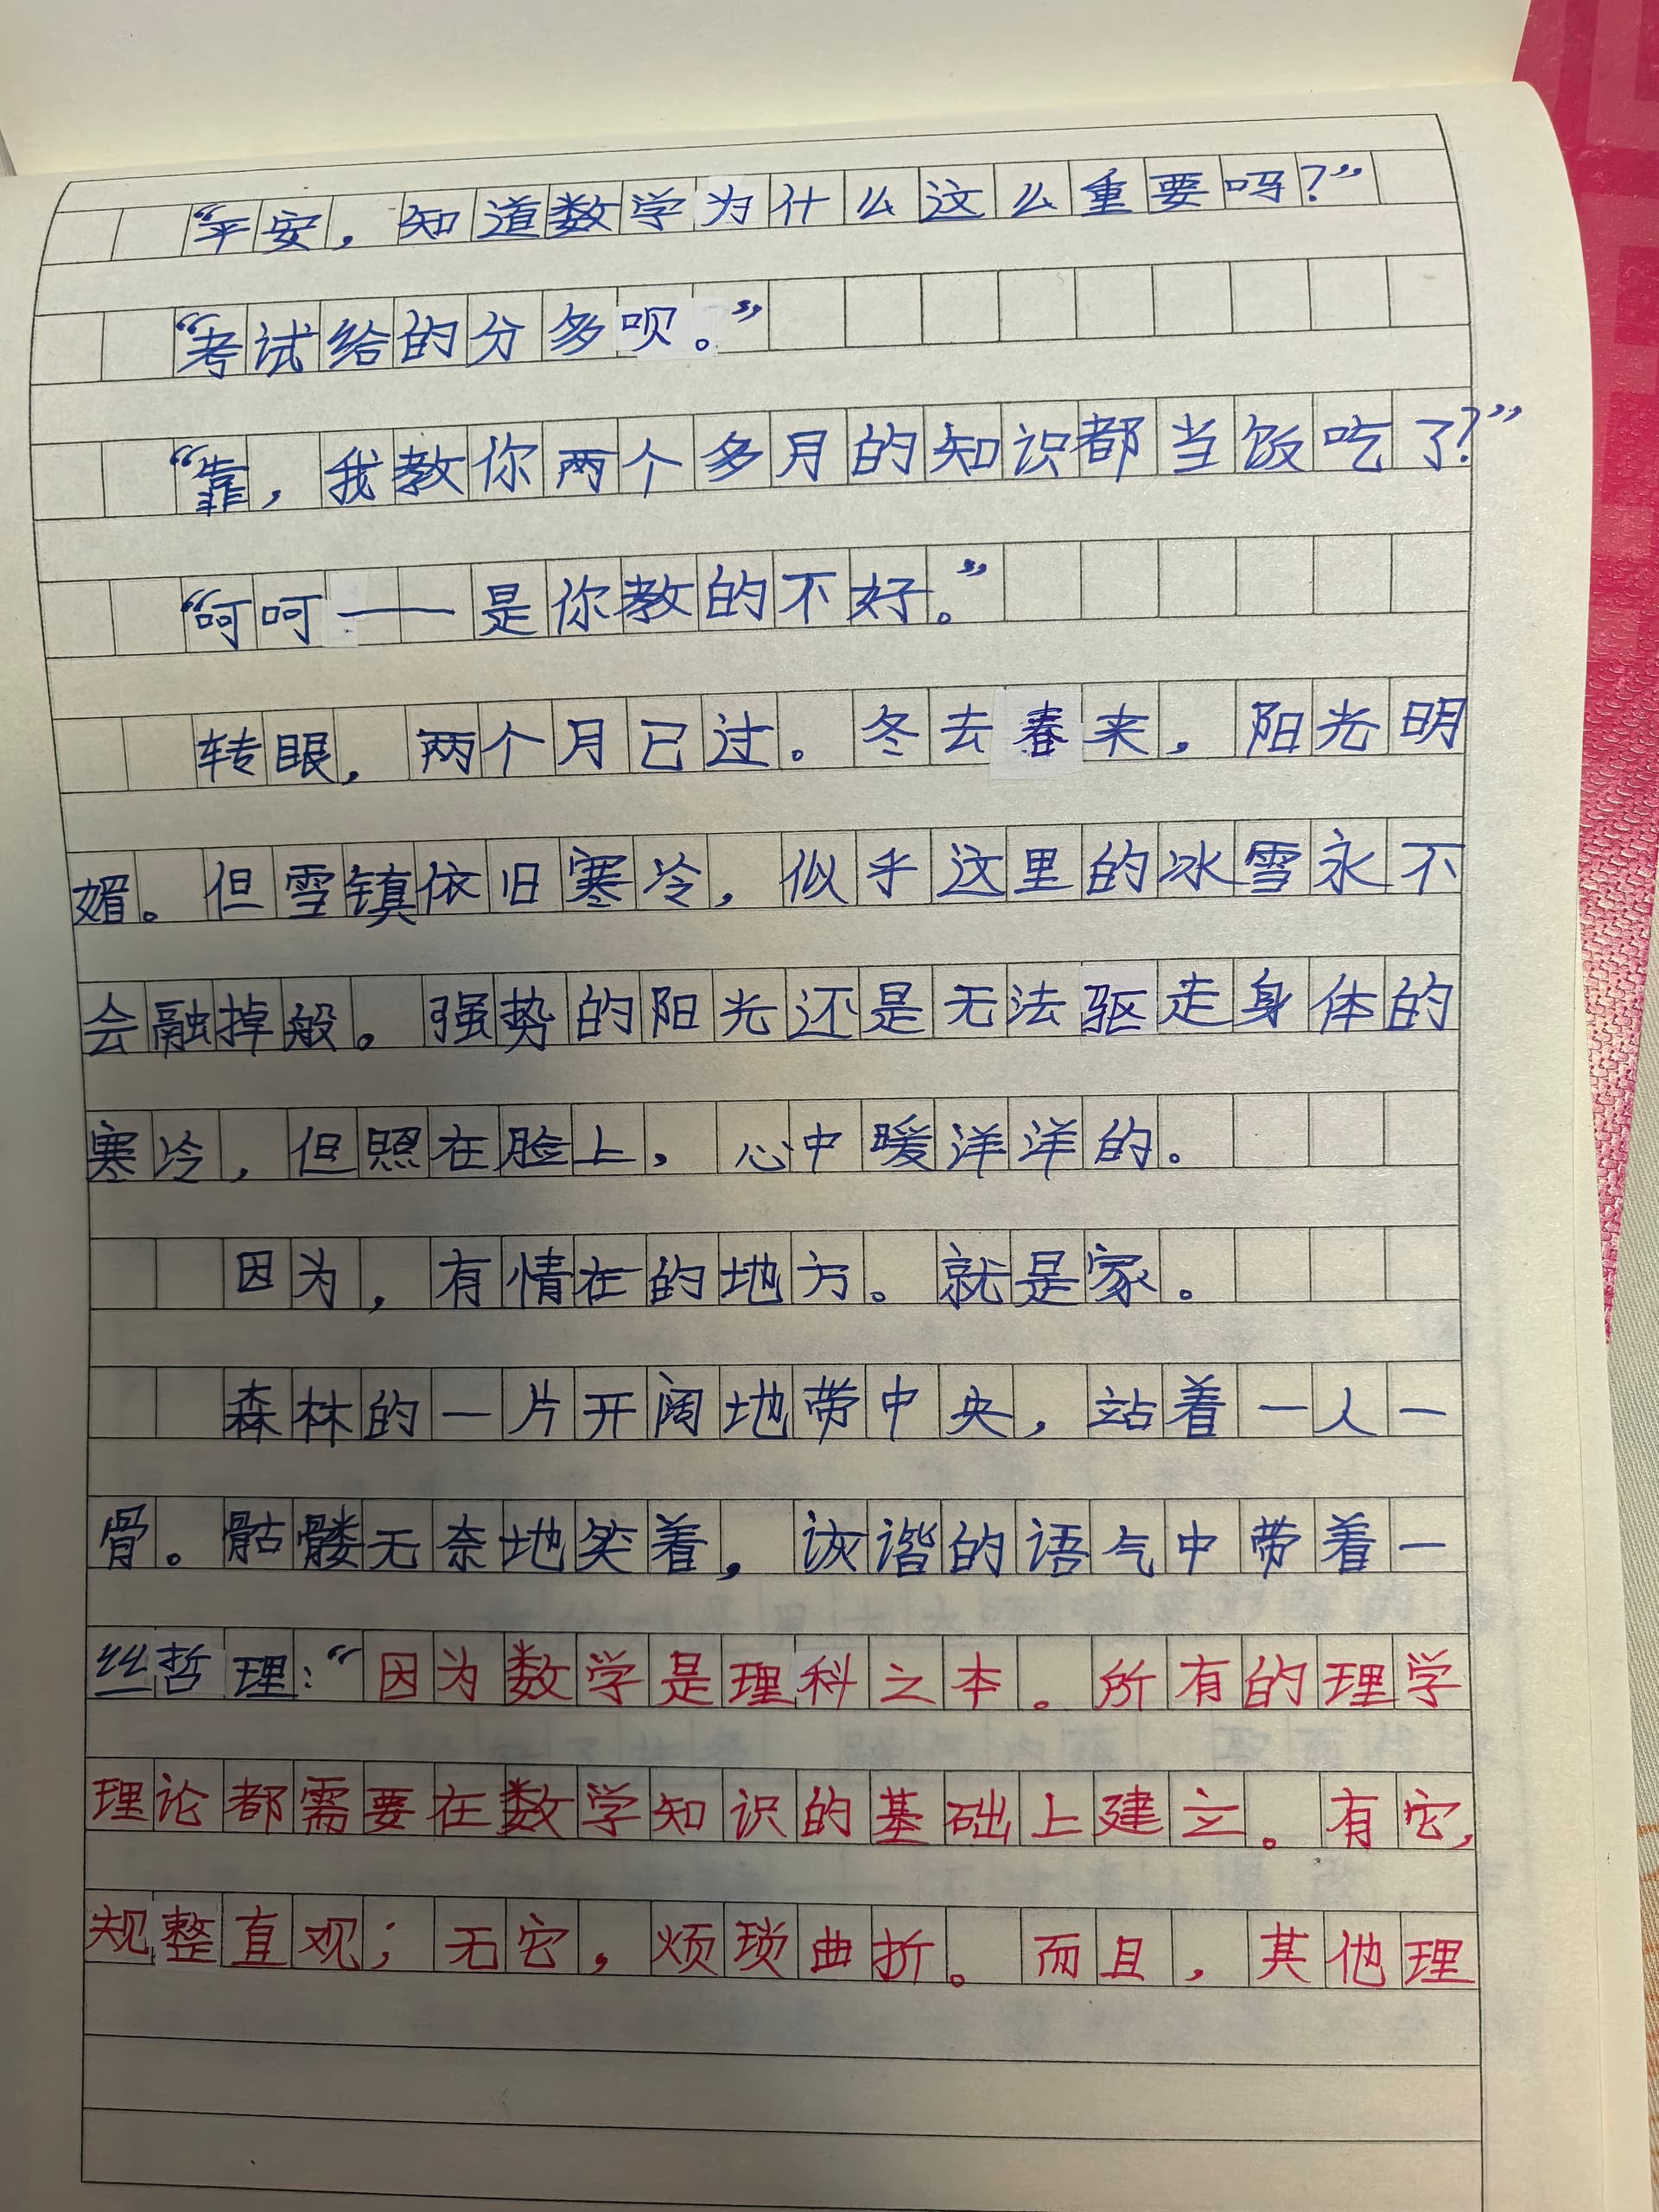 “平安，知道数学为什么这么重要吗？”
“考试给的分多呗。”
“靠，我教你两个多月的知识都当饭吃了？”
“呵呵——是你教的不好。”
转眼，两个月已过。冬去春来，阳光明
媚。但雪镇依旧寒冷，似乎这里的冰雪永不
会融掉般。强势的阳光还是无法驱走身体的
寒冷，但照在脸上，心中暖洋洋的。
因为，有情在的地方。就是家。
森林的一片开阔地带中央，站着一人一
骨。骷髅无奈地笑着，诙谐的语气中带着一
丝哲理：“因为数学是理科之本。所有的理学
理论都需要在数学知识的基础上建立。有它，
规整直观；无它，烦琐曲折。而且，其他理